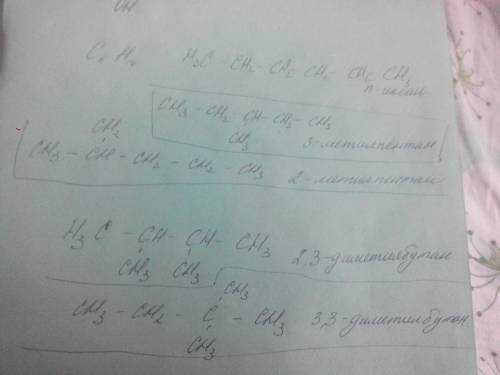 OH
H₃C CH₂ – CH₂ CH₂ CH₂ CH₃
CH₃ – CH₂ CH – CH₂ – CH₃
CH₃ 3-метилпентан
CH₂
CH₃ – CH – CH₂ – CH₂ – CH₃ 2-метилпентан
H₃C – CH – CH – CH₃
CH₃ CH₃ 2,3-диметилбутан
CH₃
CH₃ – CH₂ – C – CH₃ 3,3-диметилбутан
CH₃